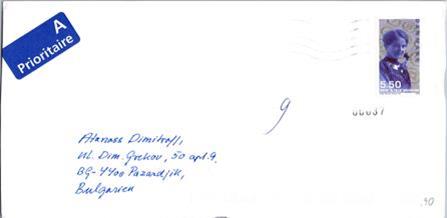 A
Prioritaire
5.50
00037
9
Atanass Dimitroff,
Ul. Dim. Grekov, 50 apt. 9.
BG-4400 Pazardjik,
Bulgarien
.90